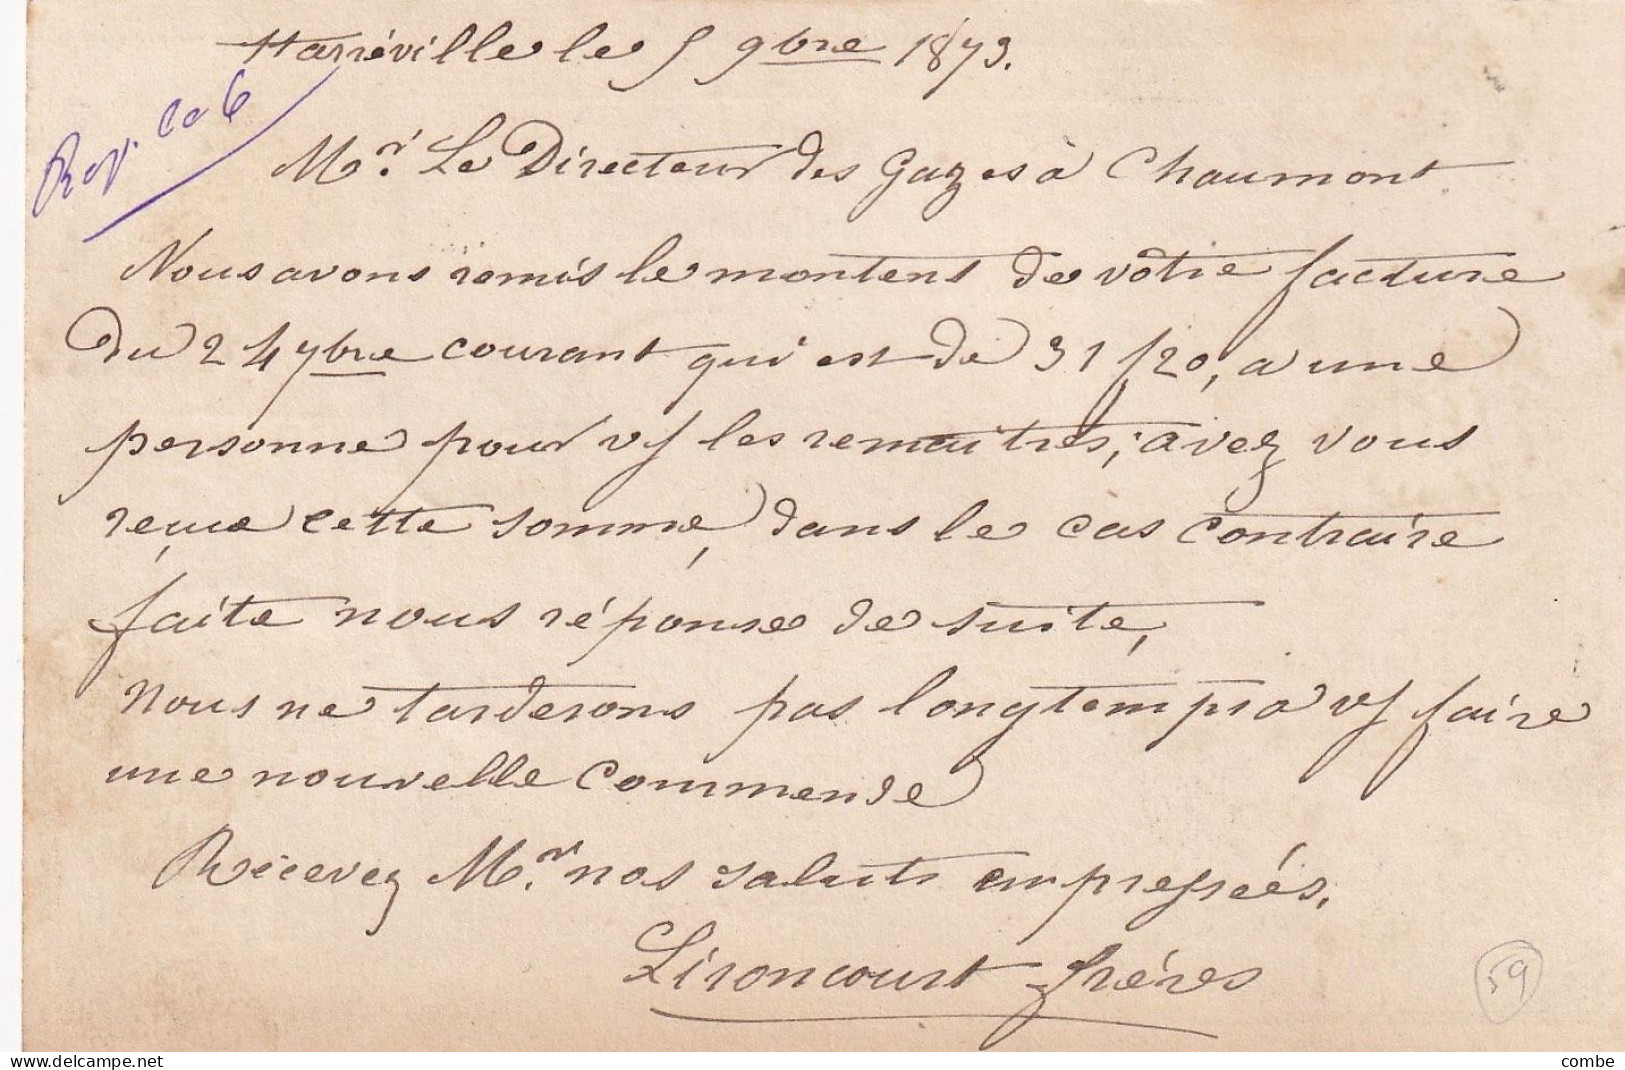 Harréville le 5 9bre 1873.
Rep. le 6
Mr. Le Directeur des Gazes à Chaumont
Nous avons remis le montens de vôtre facture
du 24 7bre courant qui est de 31 f 20, a une
personne pour vs les remaitres, avez vous
reçue cette somme, dans le cas contraire
faite nous réponse de suite,
nous ne tarderons pas longtemps a vs faire
une nouvelle commende
Recevez Mr. nos saluts empressées.
Lironcourt frères
59
combe